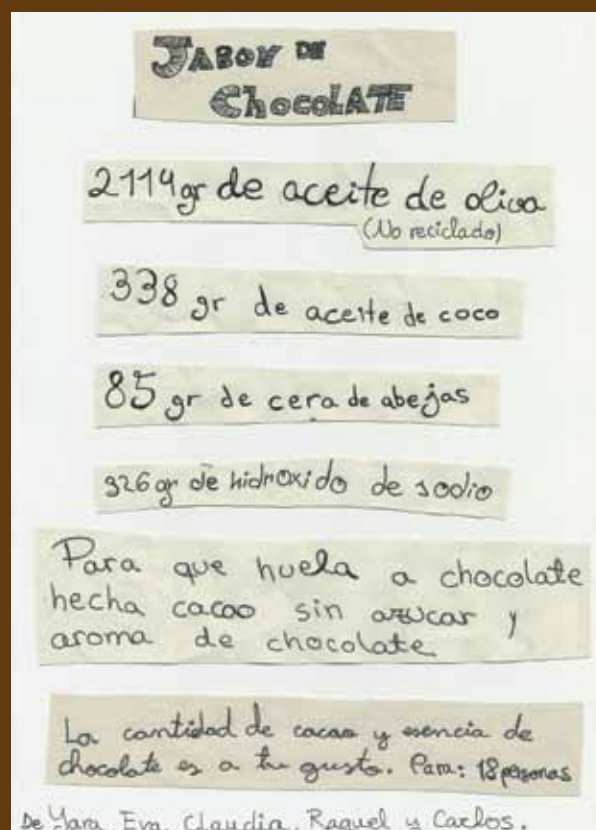 JABON DE
CHOCOLATE
2114gr de aceite de oliva
(No reciclado)
338 gr de aceite de coco
85 gr de cera de abejas
326 gr de hidroxido de sodio
Para que huela a chocolate
hecha cacao sin azucar y
aroma de chocolate
La cantidad de cacao y esencia de
chocolate es a tu gusto. Para: 18 personas
De Yara, Eva, Claudia, Raquel y Carlos.